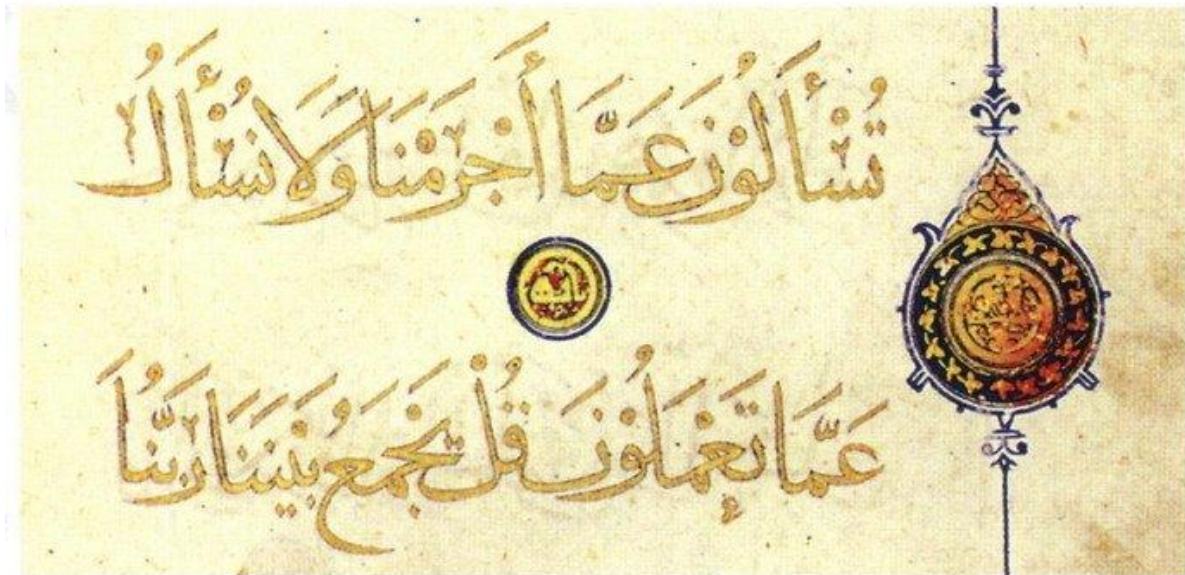 تُسْأَلُوْنَ عَمَّا أَجْرَمْنَا وَلَا نُسْأَلُ
عَمَّا تَعْمَلُوْنَ قُلْ يَجْمَعُ بَيْنَنَا رَبُّنَا